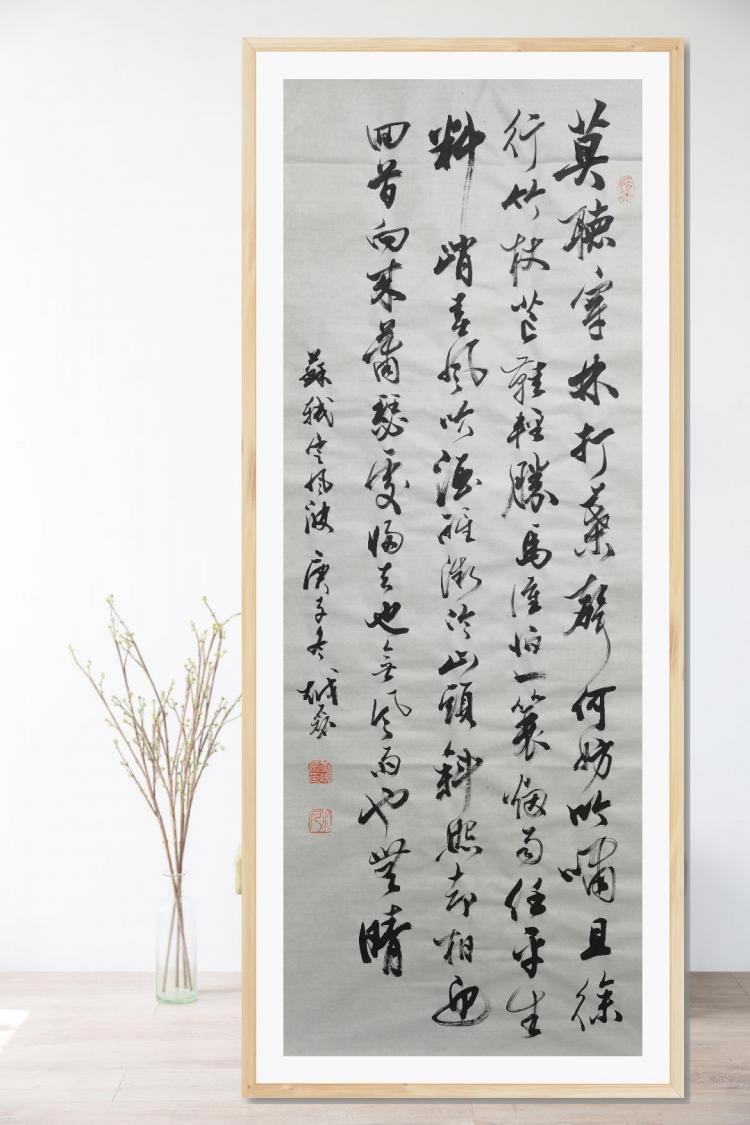 莫聽穿林打葉聲何妨吟嘯且徐
行竹杖芒鞋輕勝馬誰怕一蓑煙雨任平生
料峭春風吹酒醒微冷山頭斜照却相迎
回首向來蕭瑟處歸去也無風雨也無晴
蘇軾定風波 庚子冬